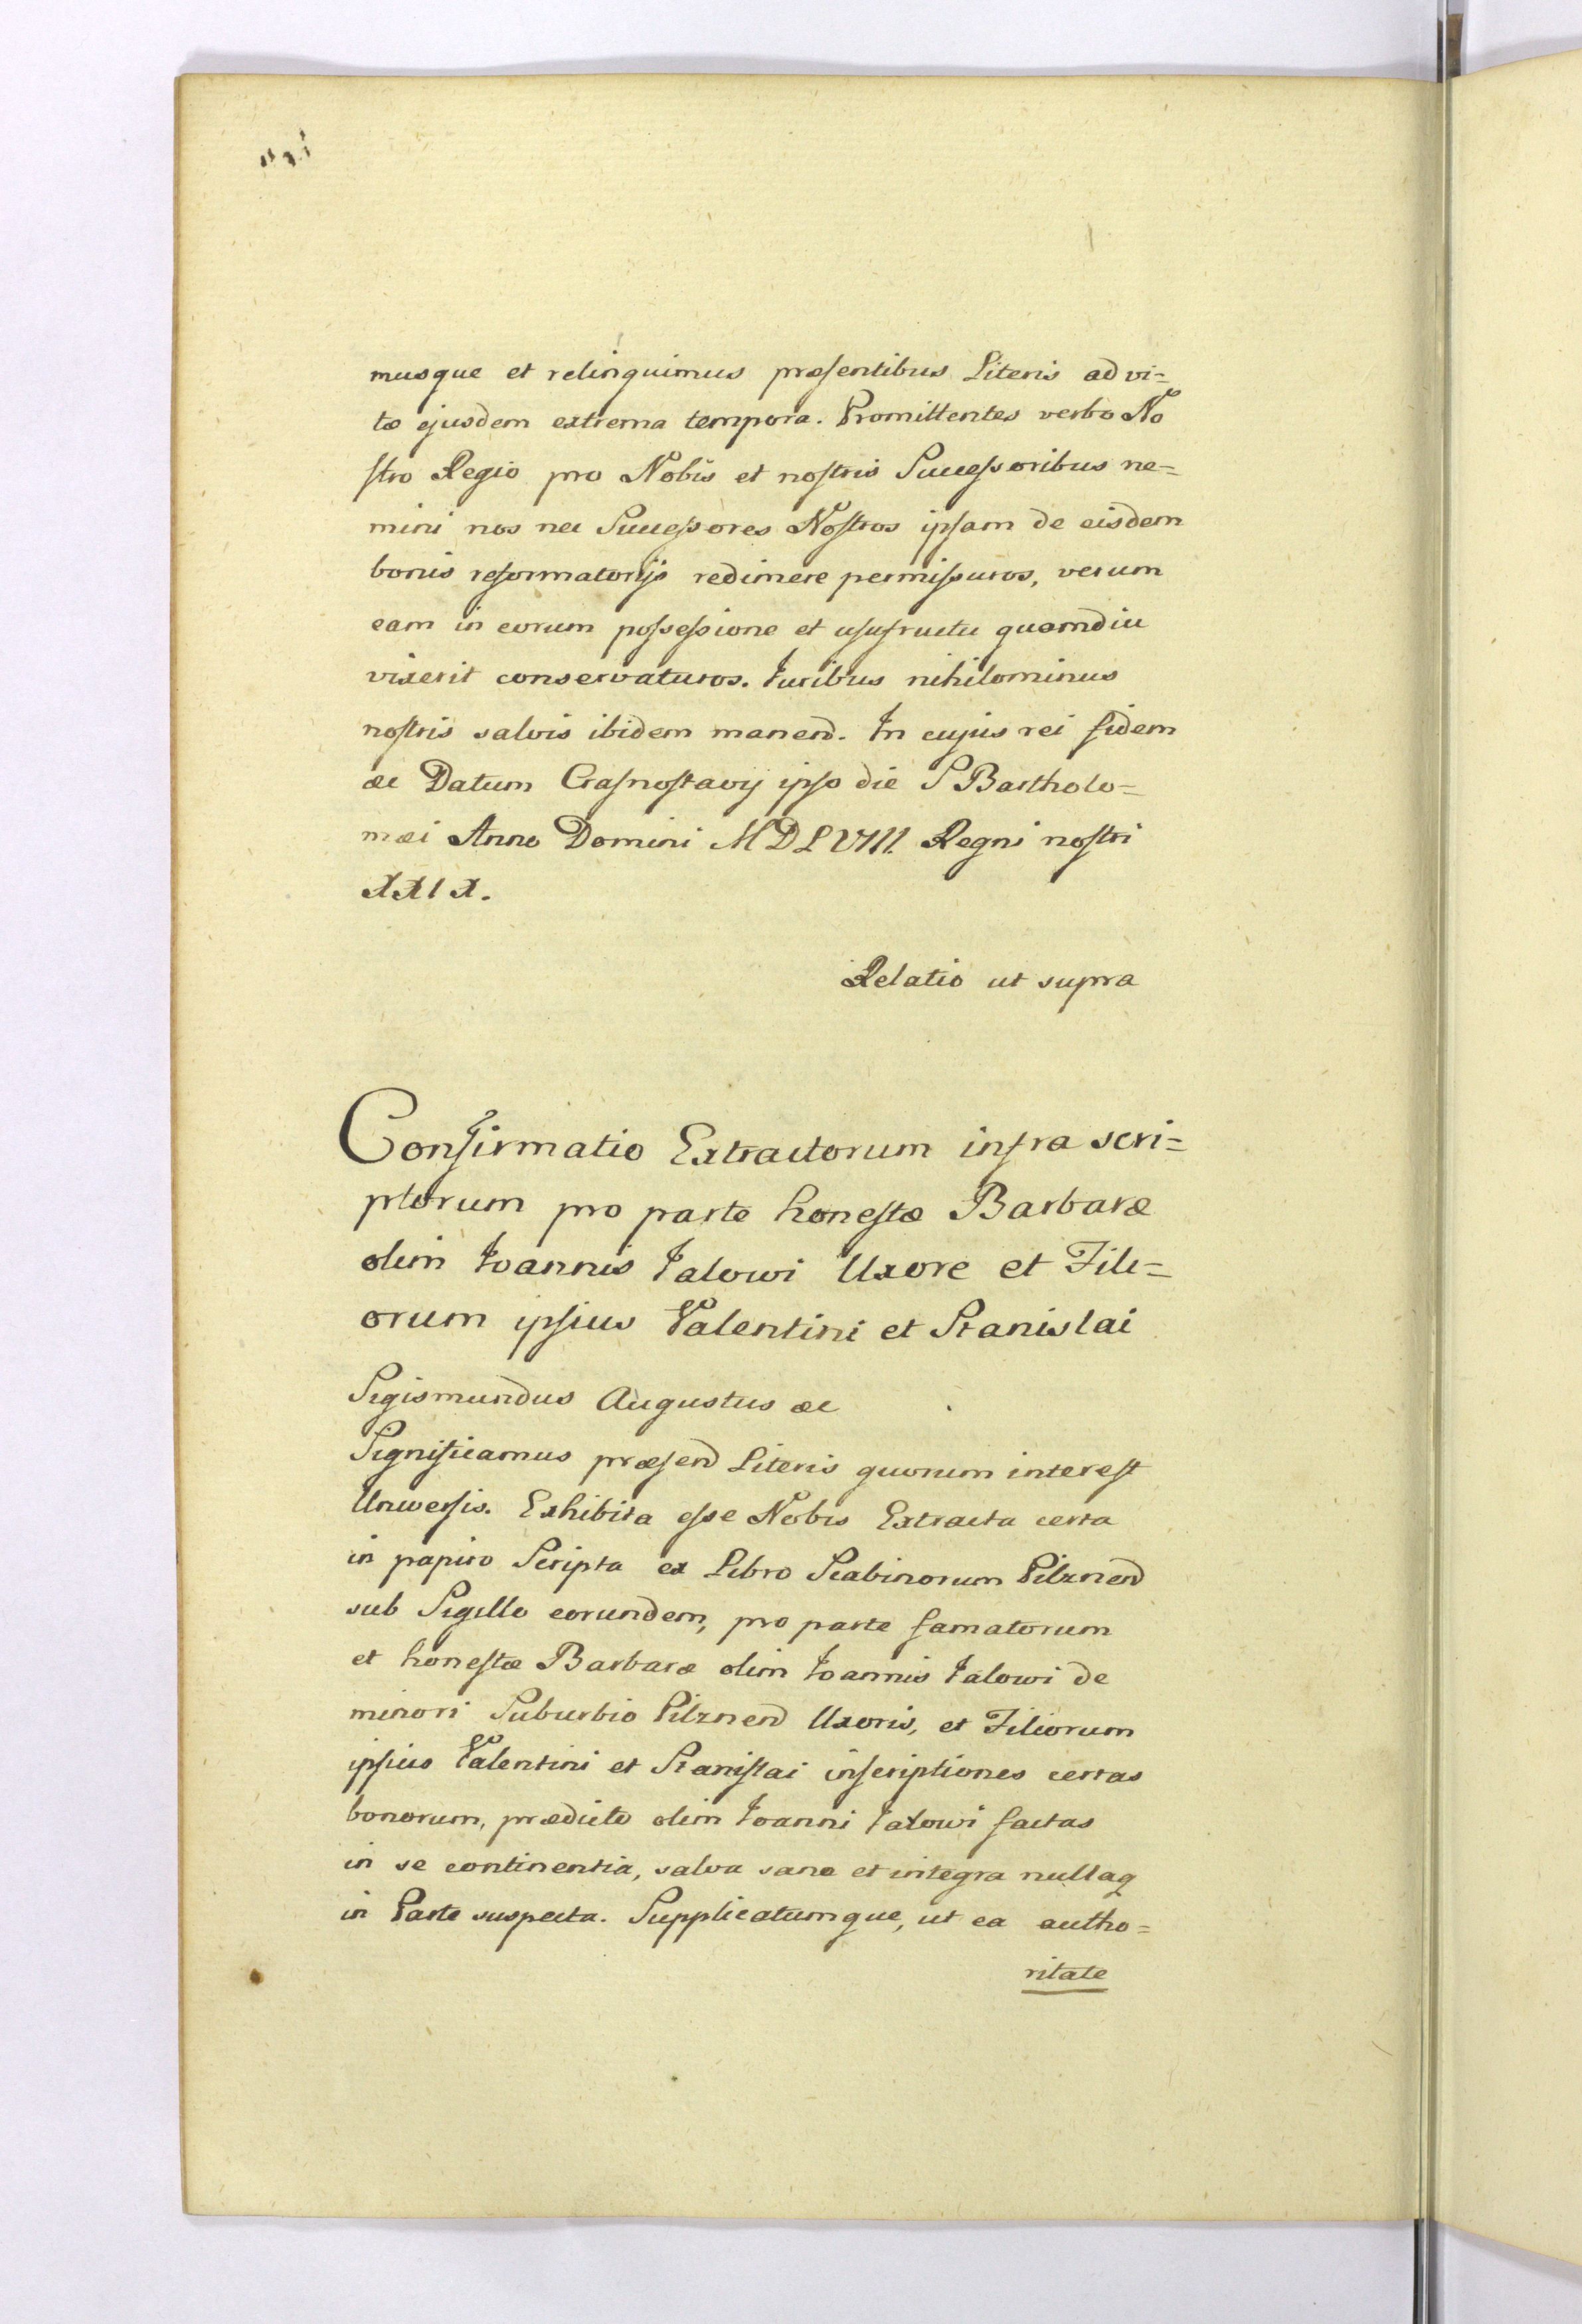 musque et relinquimus præsentibus Literis ad vi=
tæ ejusdem extrema tempora. Promittentes verbo No
stro Regio pro Nobis et nostris Successoribus ne=
mini nos nec Successores Nostros ipsam de eisdem
bonis reformatorijs redimere permissuros, verum
eam in eorum possessione et usufructu quamdiu
vixerit conservaturos. Iuribus nihilominus
nostris salvis ibidem manend. In cujus rei fidem
æc Datum Crasnostavij ipso die S Bartholo=
mæi Anno Domini MDLVIII. Regni nostri
XXIX.
Relatio ut supra
Confirmatio Extractorum infra scri=
ptorum pro parte honestæ Barbaræ
olim Ioannis Ialowi Uxore et Fili=
orum ipsius Valentini et Stanislai
Sigismundus Augustus æc
Significamus præsend Literis quorum interest
Universis. Exhibita esse Nobis Extracta certa
in papiro Scripta ex Libro Scabinorum Pilznend
sub Sigillo eorundem, pro parte famatorum
et honestæ Barbaræ olim Ioannis Ialowi de
minori Suburbio Pilznend Uxoris, et Filiorum
ipsius Valentini et Stanislai inscriptiones certas
bonorum, prædicto olim Ioanni Ialowi factas
in se continentia, salva sana et integra nullaq
in Parte suspecta. Supplicatumque, ut ea autho=
ritate